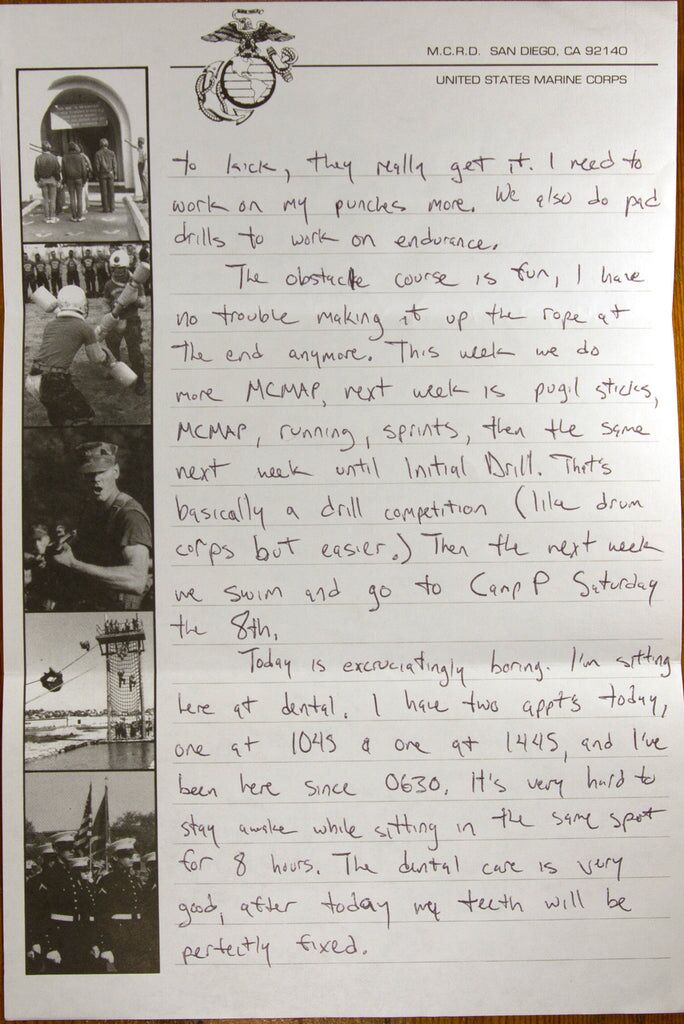 M.C.R.D. SAN DIEGO, CA 92140
UNITED STATES MARINE CORPS
to kick, they really get it. I need to
work on my punches more. We also do pad
drills to work on endurance.
The obstacle course is fun, I have
no trouble making it up the rope at
the end anymore. This week we do
more MCMAP, next week is pugil sticks,
MCMAP, running, sprints, then the same
next week until Initial Drill. That's
basically a drill competition (like drum
corps but easier.) Then the next week
we swim and go to Camp P Saturday
the 8th.
Today is excruciatingly boring. I'm sitting
here at dental. I have two appt's today,
one at 1045 & one at 1445, and I've
been here since 0630. It's very hard to
stay awake while sitting in the same spot
for 8 hours. The dental care is very
good, after today my teeth will be
perfectly fixed.